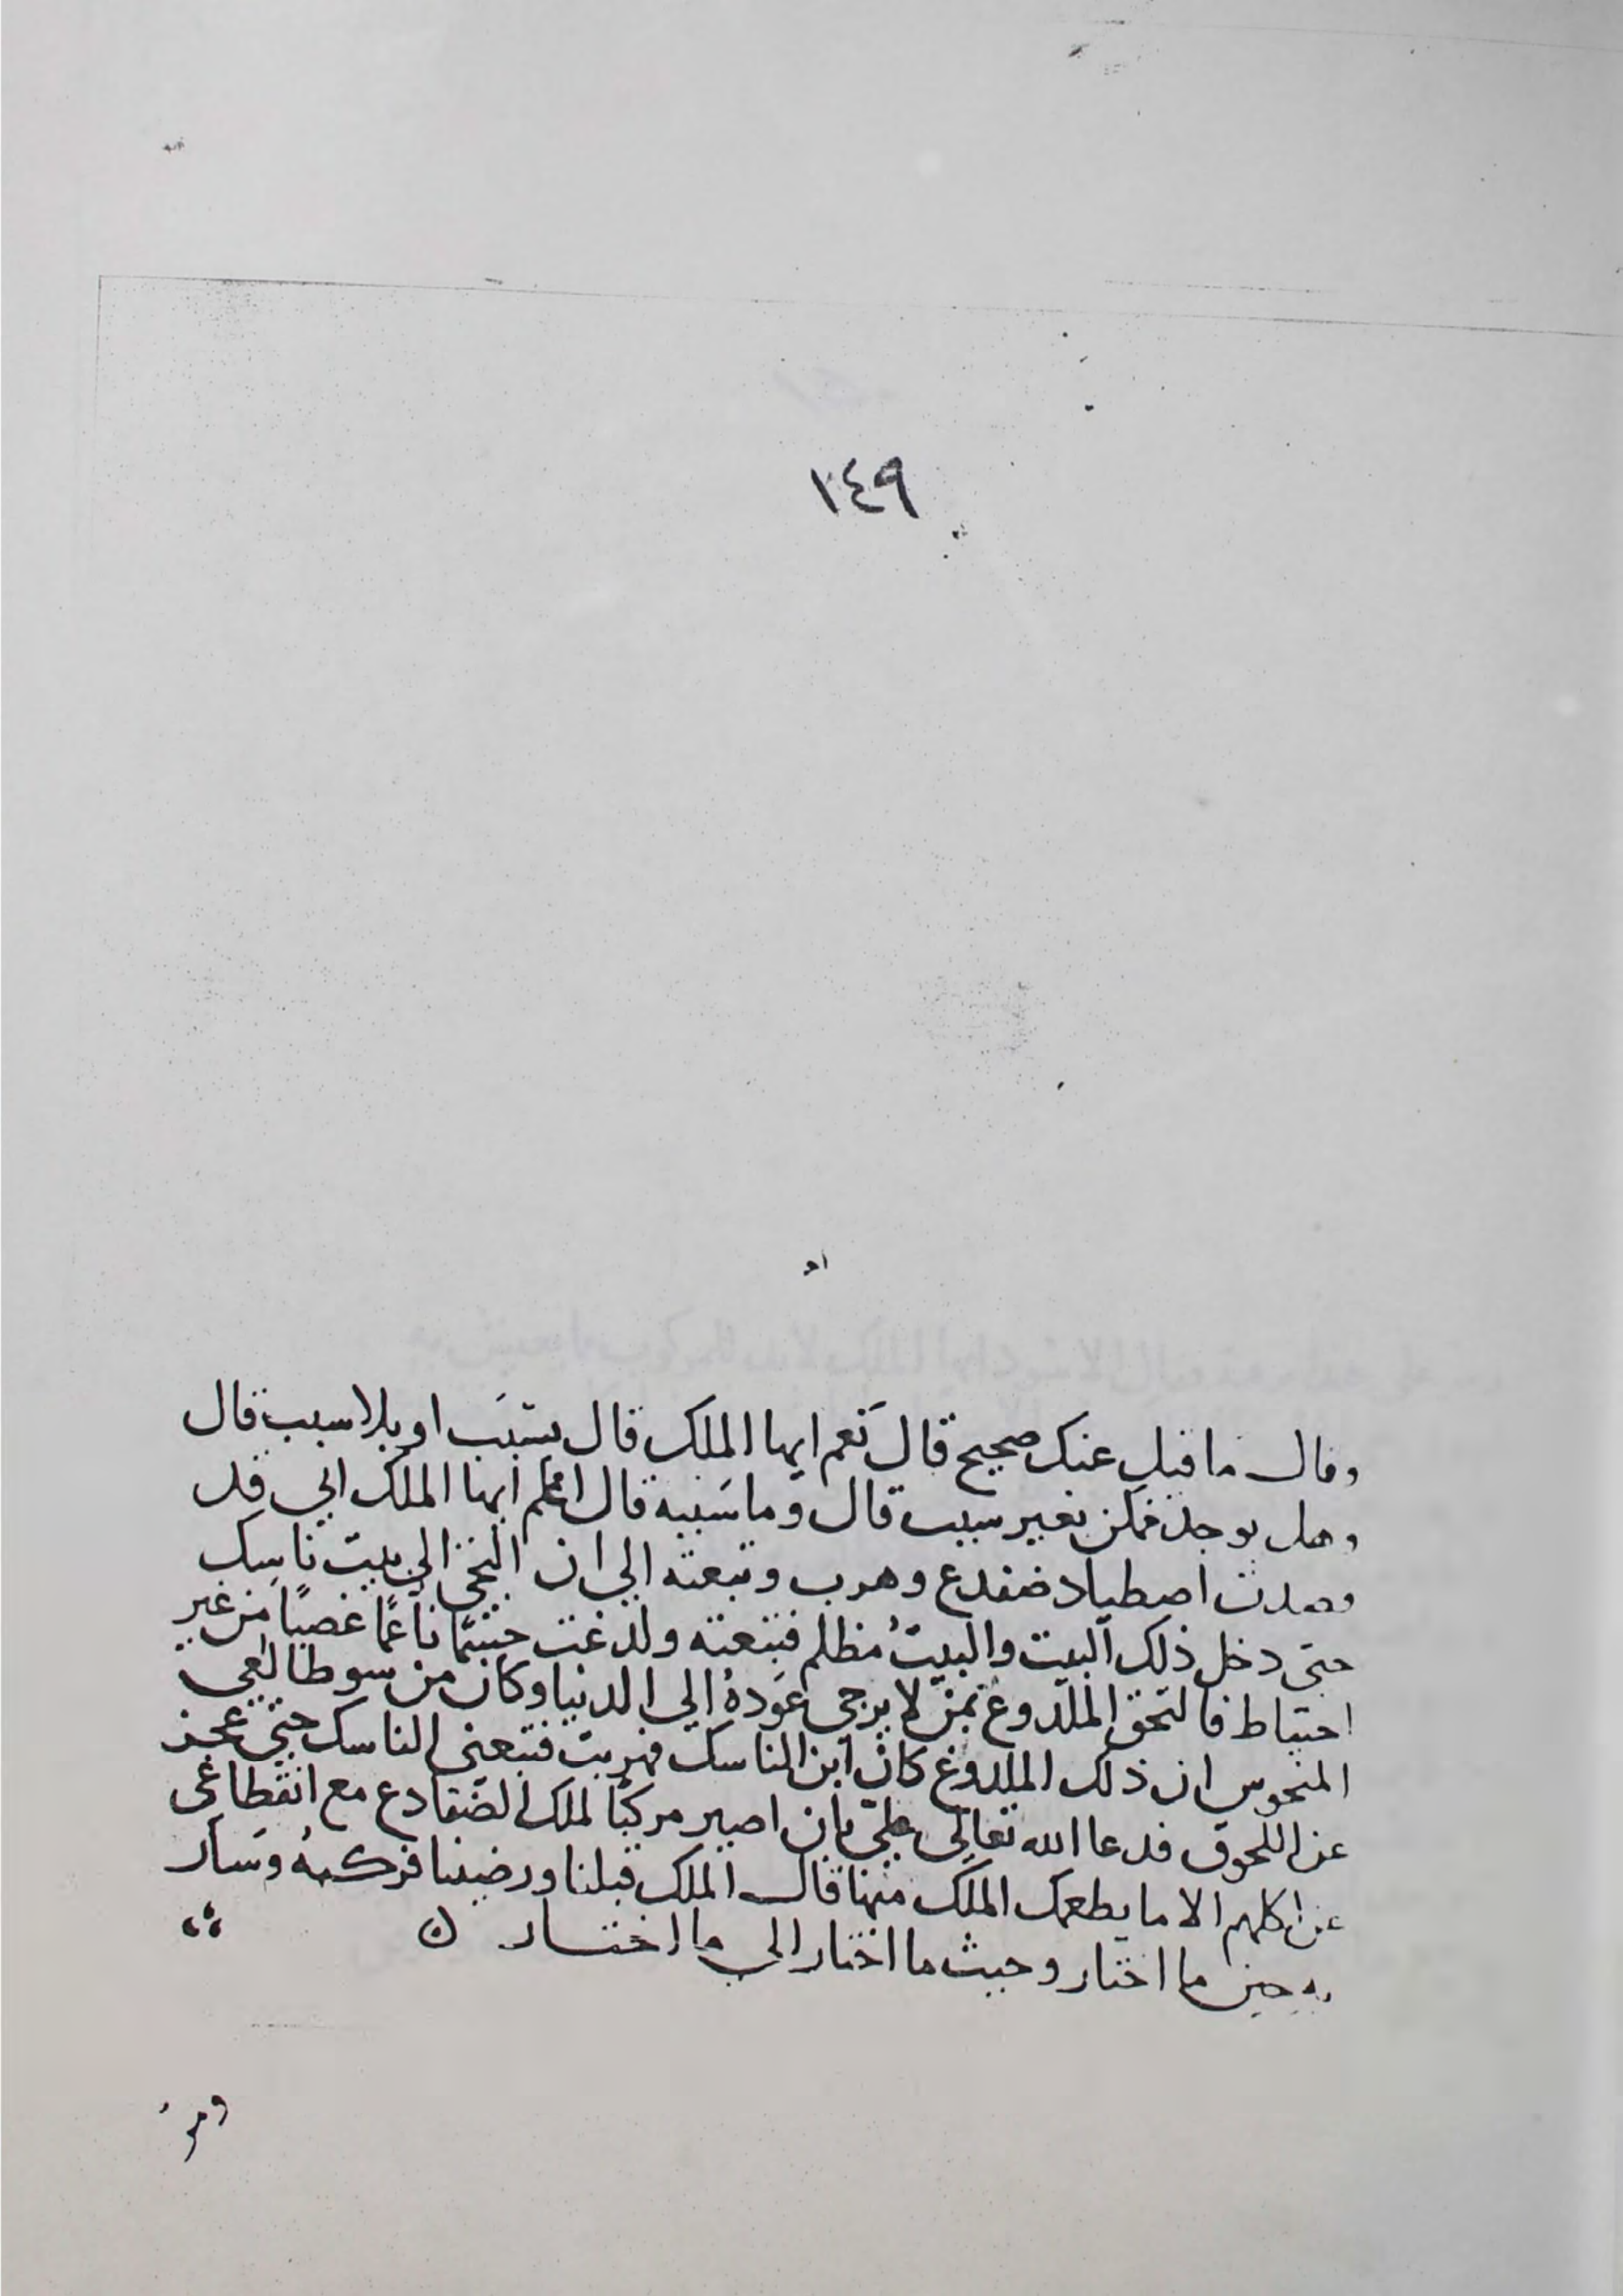 ١٤٩
وقال ما قيل عنك صحيح قال نَعم ايها الملك قال بسَبَب او بلا سبب قال
وهل يوجد ممكن بغير سبب قال وما سَببه قال اعلم ايها الملك اني قد
قصدت اصطياد ضفدع وهرب وتبعته الي ان التجي الي بيت ناسِك
حتى دخل ذلك البيت والبيتُ مظلم فتبعته ولدغت جيثمًا ناعمًا غصبًا من غير
احتياط فالتحق الملدوغ بمن لا يرجى عَودهُ الي الدنيا وكان من سوطالعي
المنحوس ان ذلك الملدوغ كان ابن الناسك فهربت فتبعني الناسك حتى عجز
عن اللحوق فدعا الله تعالى علىّ بان اصير مركبًا لملك الضفادع مع انقطاعي
عن اكلهم الا ما يطعمك الملك منها قال الملك قبلنا ورضينا فركبهُ وسَار
به حين ما اختار وحيث ما اختار الي ما اختار ن